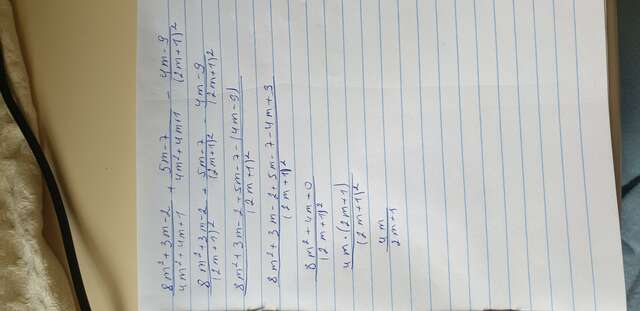 8m²+3m-2 / 4m²+4m+1 + 5m-7 / 4m²+4m+1 - 4m-9 / (2m+1)²
8m²+3m-2 / (2m+1)² + 5m-7 / (2m+1)² - 4m-9 / (2m+1)²
8m²+3m-2+5m-7-(4m-9) / (2m+1)²
8m²+3m-2+5m-7-4m+9 / (2m+1)²
8m²+4m+0 / (2m+1)²
4m·(2m+1) / (2m+1)²
4m / 2m+1